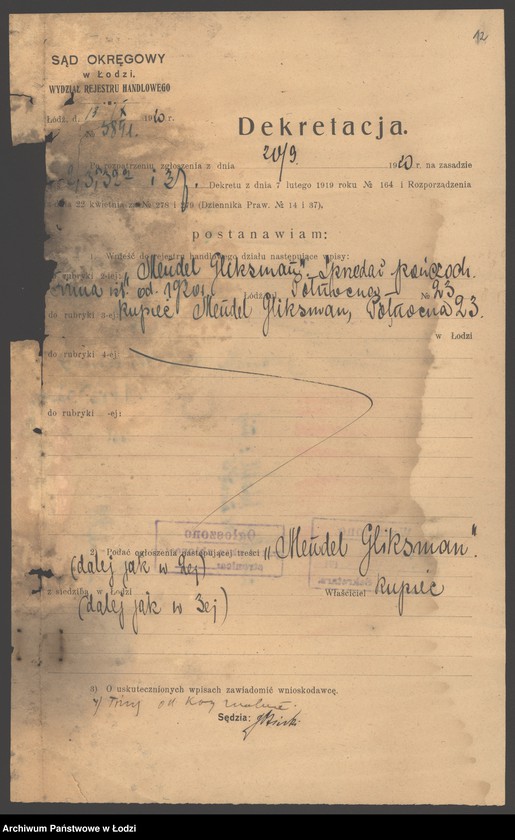 12
SĄD OKRĘGOWY
w Łodzi,
WYDZIAŁ REJESTRU HANDLOWEGO
Łódź, d. 13 X 1920 r.
№ 5891.
Dekretacja.
Po rozpatrzeniu zgłoszenia z dnia 20/9 1920 r. na zasadzie
i 37. Dekretu z dnia 7 lutego 1919 roku № 164 i Rozporządzenia
z dnia 22 kwietnia № 278 i 279 (Dziennika Praw. № 14 i 37).
postanawiam:
1) Wnieść do rejestru handlowego działu następujące wpisy:
do rubryki 2-iej: „Mendel Gliksman". Sprzedaż pończoch.
od 1920r. Łódź, ul. Północna № 23
do rubryki 3-ej: kupiec Mendel Gliksman, Północna 23.
w Łodzi
do rubryki 4-ej
do rubryki -ej:
2) Podać ogłoszenia następującej treści „Mendel Gliksman".
(dalej jak w 2ej)
z siedzibą w Łodzi Właściciel kupiec
(dalej jak w 3ej)
3) O uskutecznionych wpisach zawiadomić wnioskodawcę.
4)
Sędzia:
Archiwum Państwowe w Łodzi